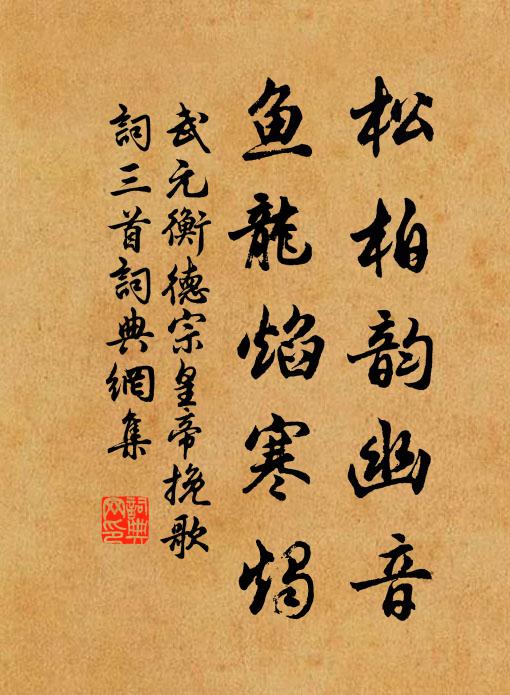 松柏韵幽音
鱼龍焰寒燭
武元衡德宗皇帝挽歌
詞三首詞典網集
詞典网印